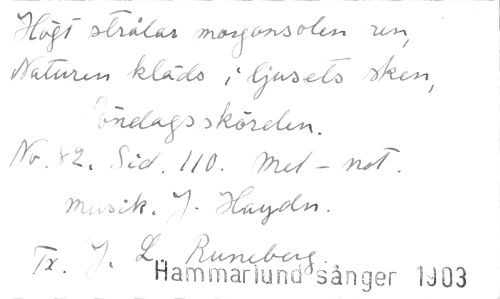 Högt strålar morgonsolen ren,
Naturen kläds i ljusets sken,
Söndagsskörden.
No. 82. Sid. 110. Mel-not.
musik. J. Haydn.
Tx. J. L. Runeberg.
Hammarlund sånger 1903